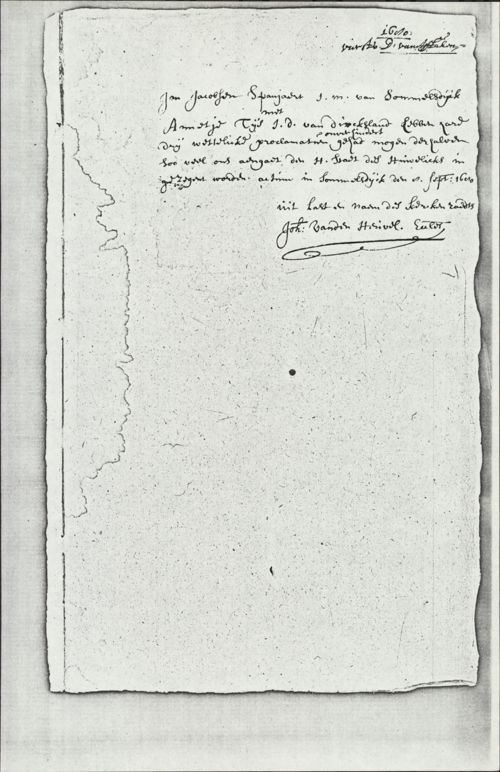 1680.
Jan Jacobsen Spanjaert J. m. van Sommelsdijck
met
Annetje Tijs J. D. van dircksland hebben hare
drij wettelicke proclamatien gehad mogen derhalven
onverhindert
Soo veel ons aengaet den H. Staet des Huwelicks in
gezegent worden. actum in Sommelsdijck den 8. Sept: 1680
uit last en naem des kerkenraedts
Joh: Vanden Heuvel. Eccles